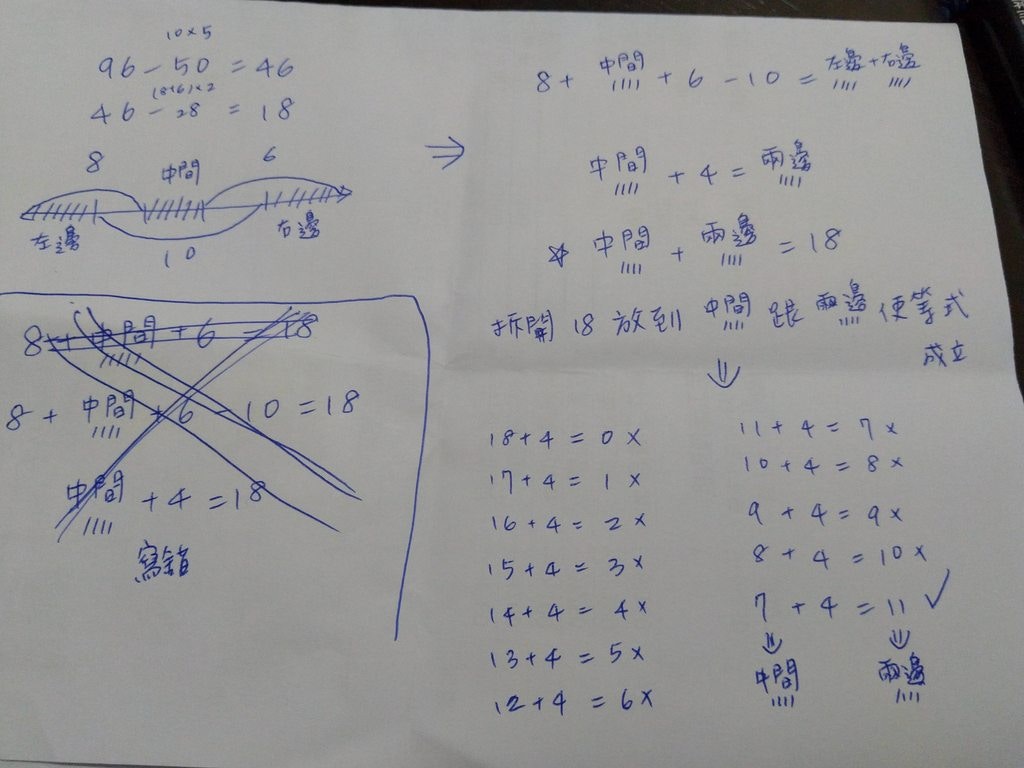 10×5
96-50=46
(8+6)×2
46-28=18
8
6
中間
左邊
右邊
10
8+中間+6=18
8+中間+6-10=18
中間+4=18
寫錯
⇒
8+中間+6-10=左邊+右邊
中間+4=兩邊
☆ 中間+兩邊=18
拆開18放到中間跟兩邊使等式
成立
⇓
18+4=0×
17+4=1×
16+4=2×
15+4=3×
14+4=4×
13+4=5×
12+4=6×
11+4=7×
10+4=8×
9+4=9×
8+4=10×
7+4=11✓
⇓ ⇓
中間 兩邊